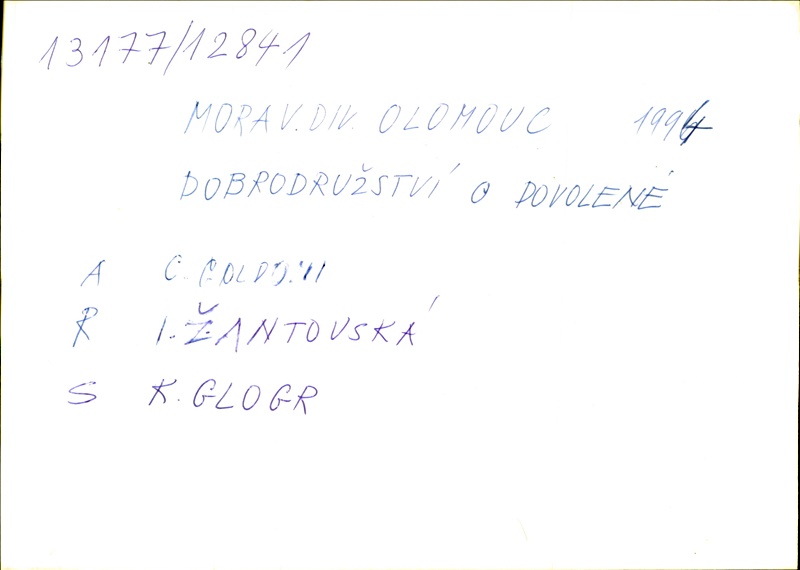 13177/12841
MORAV. DIV. OLOMOUC 1994
DOBRODRUŽSTVÍ O DOVOLENÉ
A C. GOLDONI
R I. ŽANTOVSKÁ
S K. GLOGR